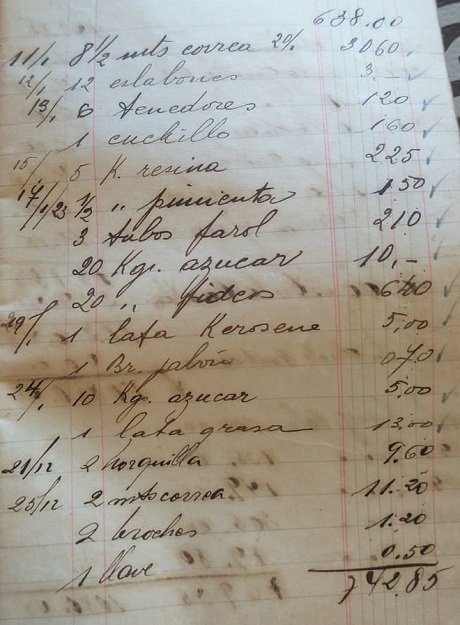 638.00
11/1 8 1/2 mts correa 20/. 3060
12/1 12 eslabones 3.-
13/1 6 tenedores 120
1 cuchillo 160
15/1 5 K. resina 225
17/1/23 1/2 " pimienta 1.50
3 tubos farol 210
20 Kgr. azucar 10.-
20 " fideos 640
1 lata Kerosene 5.00
1 Br. jabón 070
24/1 10 Kg. azucar 5.00
1 lata grasa 13.00
21/12 2 horquilla 9.60
25/12 2 mts correa 11.20
2 broches 1.20
1 llave 0.50
742.85